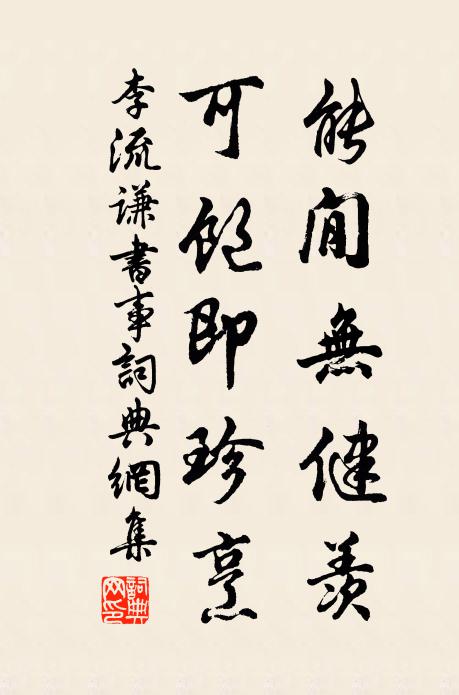 能閒無健羨
可飽即珍烹
李流謙書事詞典網集
詞典網印